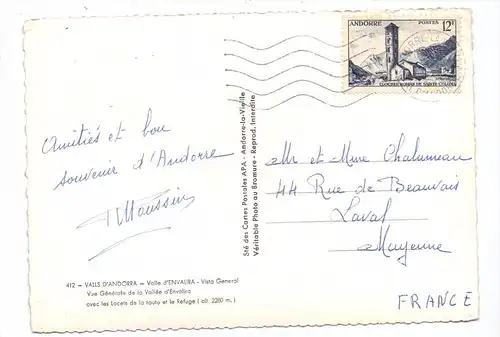 ANDORRE POSTES 12F
CLOCHER ROMAN DE SAINTE COLOMA
Amitiés et bon
souvenir d'Andorre
Sté des Cartes Postales APA - Andorre-la-Vieille
Véritable Photo au Bromure - Reprod. Interdite
Mr et Mme Chalumeau
44 Rue de Beauvais
Laval
Mayenne
FRANCE
412 — VALLS D'ANDORRA — Valle d'ENVALIRA - Vista General
Vue Générale de la Vallée d'Envalira
avec les Lacets de la route et le Refuge ( alt. 2280 m. )